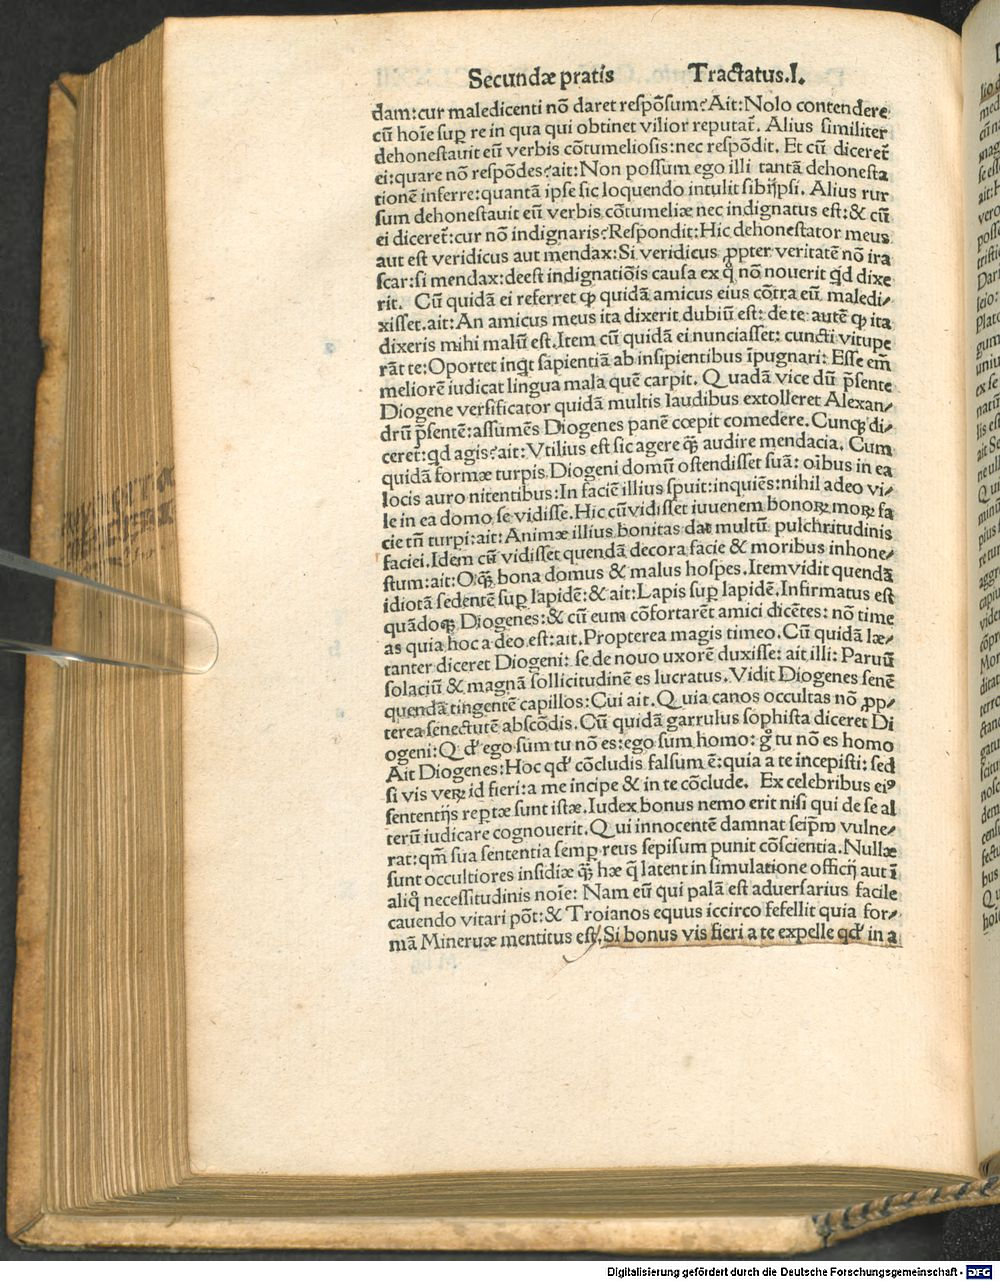 Secundæ pratis Tractatus.I.
dam:cur maledicenti nõ daret respõsum?Ait:Nolo contendere
cũ hoīe suꝑ re in qua qui obtinet vilior reputat̃. Alius similiter
dehonestauit eũ verbis cõtumeliosis:nec respõdit. Et cũ diceret̃
ei:quare nõ respõdes?ait:Non possum ego illi tantã dehonesta
tionẽ inferre:quantã ipse sic loquendo intulit sibijpsi. Alius rur
sum dehonestauit eũ verbis cõtumeliæ nec indignatus est:& cũ
ei diceret̃:cur nõ indignaris?Respondit:Hic dehonestator meus
aut est veridicus aut mendax:Si veridicus ꝓpter veritatẽ nõ ira
scar:si mendax:deest indignatiõis causa ex q̊ nõ nouerit qd̓ dixe
rit. Cũ quidã ei referret ꝙ quidã amicus eius cõtra eũ maledi⸗
xisset.ait:An amicus meus ita dixerit dubiũ est: de te autẽ ꝙ ita
dixeris mihi malũ est.Item cũ quidã ei nunciasset: cuncti vitupe
rãt te:Oportet inq̇t sapientiã ab insipientibus īpugnari: Esse em̃
meliorẽ iudicat lingua mala quẽ carpit. Quadã vice dũ p̃sente
Diogene versificator quidã multis laudibus extolleret Alexan⸗
drũ p̃sentẽ:assumẽs Diogenes panẽ cœpit comedere. Cunq; di⸗
ceret̃:qd agis?ait:Vtilius est sic agere q̃ꝫ audire mendacia. Cum
quidã formæ turpis Diogeni domũ ostendisset suã: oībus in ea
locis auro nitentibus:In faciẽ illius spuit:inquiẽs:nihil adeo vi⸗
le in ea domo se vidisse.Hic cũ vidisset iuuenem bonoꝝ moꝝ fa
cie tñ turpi:ait:Animæ illius bonitas dat multũ pulchritudinis
faciei.Idem cũ vidisset quendã decora facie & moribus inhone⸗
stum:ait:O q̃ꝫ bona domus & malus hospes.Item vidit quendã
idiotã sedentẽ suꝑ lapidẽ:& ait:Lapis suꝑ lapidẽ.Infirmatus est
quãdoq; Diogenes:& cũ eum cõfortarẽt amici dicẽtes: nõ time
as quia hoc a deo est:ait.Propterea magis timeo.Cũ quidã læ⸗
tanter diceret Diogeni: se de nouo uxorẽ duxisse: ait illi: Paruũ
solaciũ & magnã sollicitudinẽ es lucratus.Vidit Diogenes senẽ
quendã tingentẽ capillos:Cui ait.Quia canos occultas nõ ꝓp⸗
terea senectutẽ abscõdis.Cũ quidã garrulus sophista diceret Di
ogeni:Qd̓ ego sum tu nõ es:ego sum homo: g̊ tu nõ es homo
Ait Diogenes:Hoc qd̓ cõcludis falsum ẽ:quia a te incepisti: sed
si vis veꝝ id fieri:a me incipe & in te cõclude. Ex celebribus eiꝰ
sententijs reptæ sunt istæ.Iudex bonus nemo erit nisi qui de se al
terũ iudicare cognouerit.Qui innocentẽ damnat seip̄m vulne⸗
rat:qm̃ sua sententia semꝑ reus sepisum punit cõscientia.Nullæ
sunt occultiores insidiæ q̃ꝫ hæ q̃ latent in simulatione officij aut ĩ
aliq̊ necessitudinis noīe: Nam eũ qui palã est aduersarius facile
cauendo vitari põt:& Troianos equus iccirco fefellit quia for⸗
mã Mineruæ mentitus est.Si bonus vis fieri a te expelle qd̓ in a
Digitalisierung gefördert durch die Deutsche Forschungsgemeinschaft - DFG